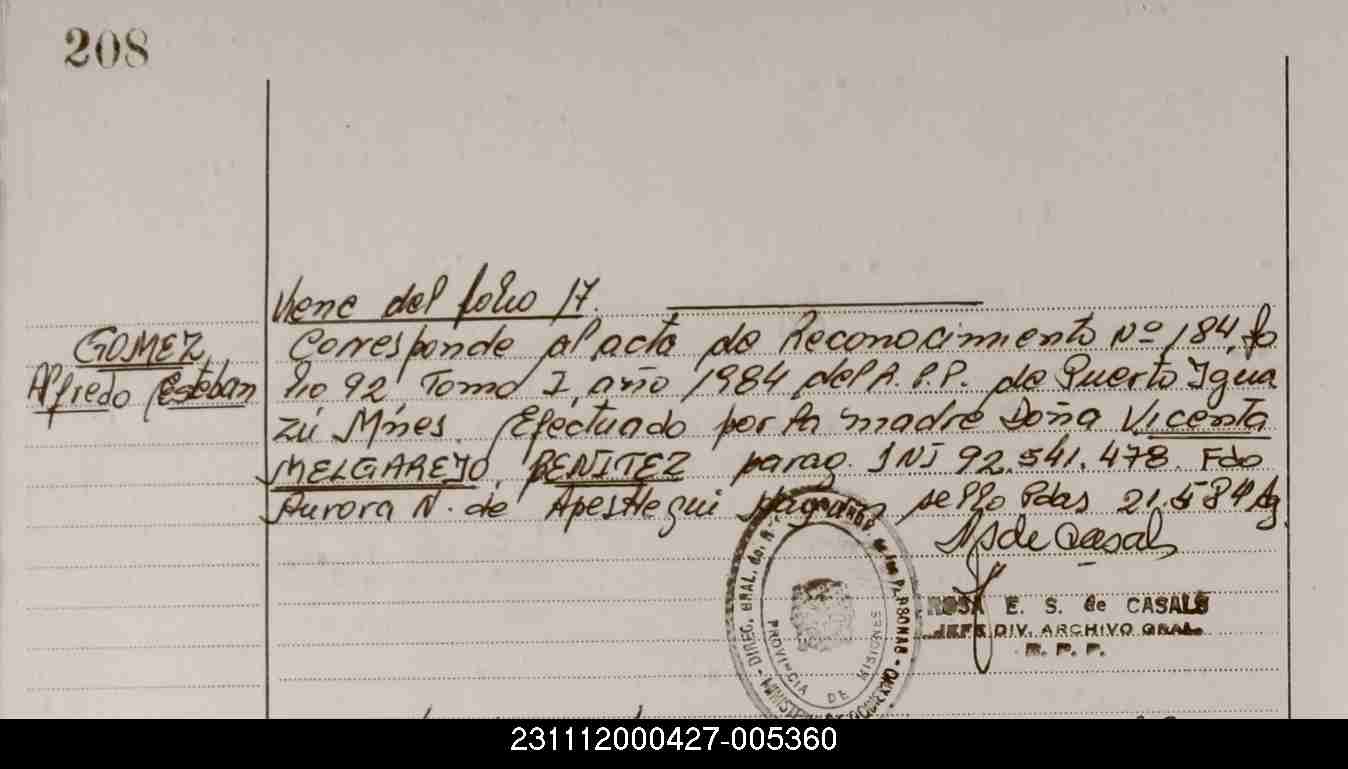 208
Viene del folio 17.
GOMEZ
Alfredo Esteban
Corresponde al acta de Reconocimiento Nº 184, fo
lio 92, Tomo I, año 1984, del R.P.P. de Puerto Igua
zú Mnes. Efectuado por la madre Doña Vicenta
MELGAREJO, BENITEZ parag. INI 92.541.478. Fdo
Aurora N. de sello Pdas 21.5.84
ROSA E. S. de CASALS
JEFE DIV. ARCHIVO GRAL.
R. P. P.
DIREC. GRAL. de las PERSONAS
PROVINCIA DE MISIONES
231112000427-005360